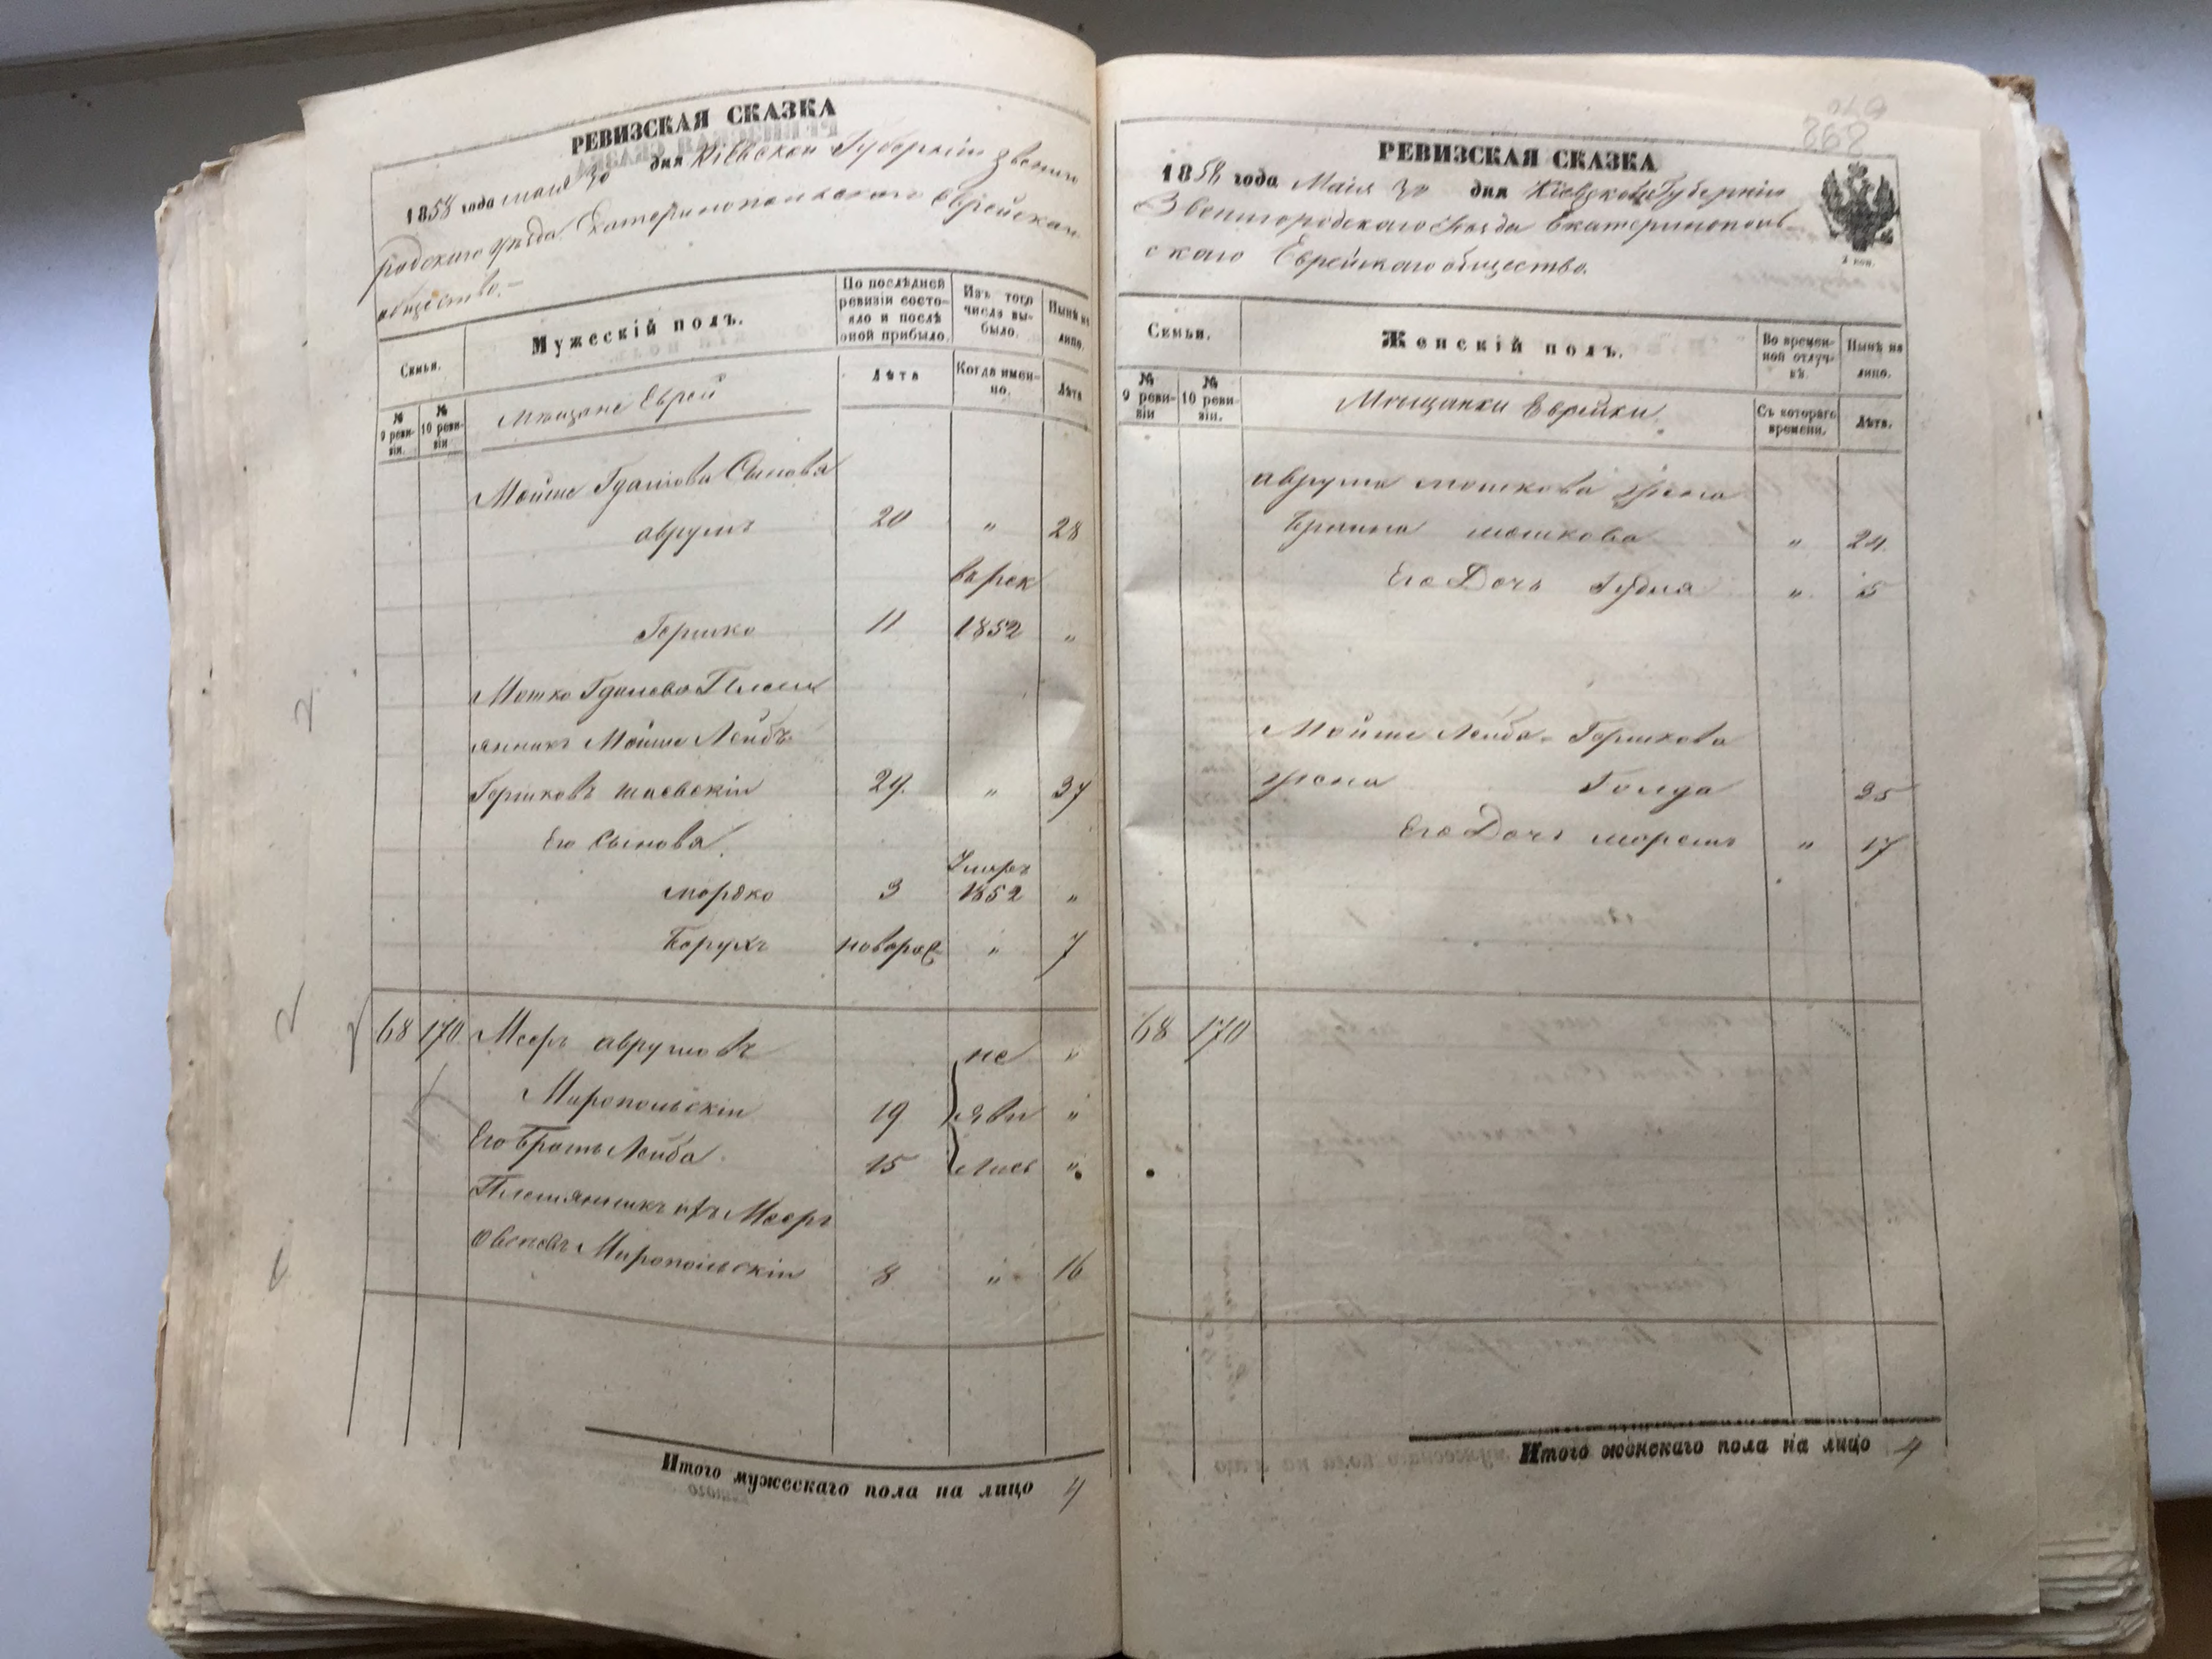 РЕВИЗСКАЯ СКАЗКА
1858 года мая 30 дня Кіевской Губерніи Звениго
родскаго Уѣзда Екатеринопольскаго Еврейскаго
общества.-
Семьи.
Мужескій полъ.
По послѣдней ревизіи состояло и послѣ оной прибыло.
Изъ того числа выбыло.
Нынѣ на лицо.
№ 9 ревизіи.
№ 10 ревизіи
Мѣщане Евреи
Лѣта
Когда именно.
Лѣта
Мойше Гдаліова Сыновя
аврумъ 20 " 28
въ рек
Гершко 11 1852 "
Мошко Гдалева Плем
янникъ Мойше Лейбъ
Гершковъ шаевскіи 29. " 37
Его Сыновя
Умеръ
мордко 3 1852 "
Борухъ новорож " 7
68 170 Мееръ аврумовъ не "
Миропольскіи 19 яви "
Его Братъ Лейба 15 лись "
Племянникъ ихъ Мееръ
Овсеевъ Миропольскіи 8 " 16
Итого мужескаго пола на лицо 4
РЕВИЗСКАЯ СКАЗКА
1858 года Маія 30 дня Кіевской Губерніи
Звенигородскаго Уѣзда Екатеринополь
скаго Еврейскаго общества.
2 коп.
Семьи.
Женскій полъ.
Во временной отлучкѣ.
Нынѣ на лицо.
№ 9 ревизіи
№ 10 ревизіи.
Мѣщанки Еврейки
Съ котораго времени.
Лѣта.
аврума мошкова жена
мошкова " 24
Его Дочь " 5
Мойше Лейба Гершкова
жена Голда 35
Его Дочь " 17
68 170
Итого женскаго пола на лицо 4